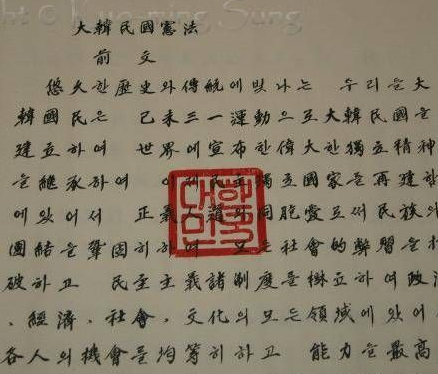 ht © Sung
大韓民國憲法
前 文
悠久한歷史와傳統에빛나는 우리들大
韓國民은 己未三一運動으로大韓民國을
建立하여 世界에宣布한偉大한獨立精神
을繼承하여 이제民主獨立國家를再建함
에있어서 正義人道와同胞愛로써民族의
團結을鞏固히하며 모든社會的弊習을打
破하고 民主主義諸制度를樹立하여政治
, 經濟, 社會, 文化의모든領域에있어
各人의機會를均等히하고 能力을最高
대한
민국